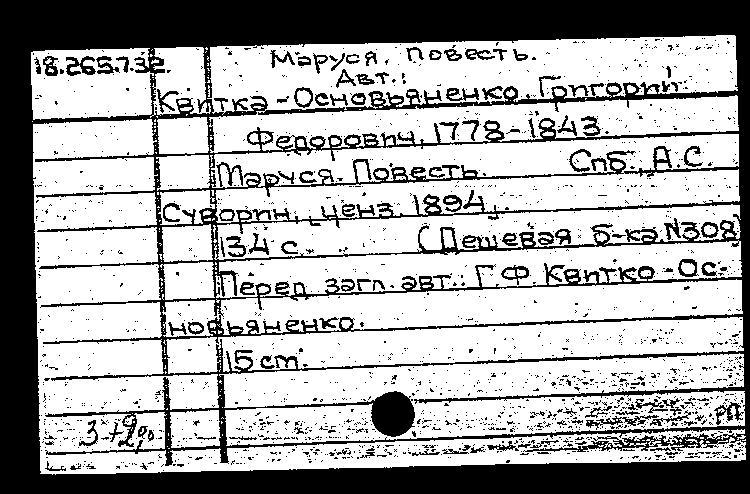 18.265.7.32. Маруся. Повесть.
Авт.:
Квитка-Основьяненко, Григорий
Федорович, 1778-1843.
Маруся. Повесть. Спб., А.С.
Суворин, [ценз. 1894].
134 с. (Дешевая б-ка. №308)
Перед загл. авт.: Г.Ф. Квитко-Ос-
новьяненко.
15 cm.
РП